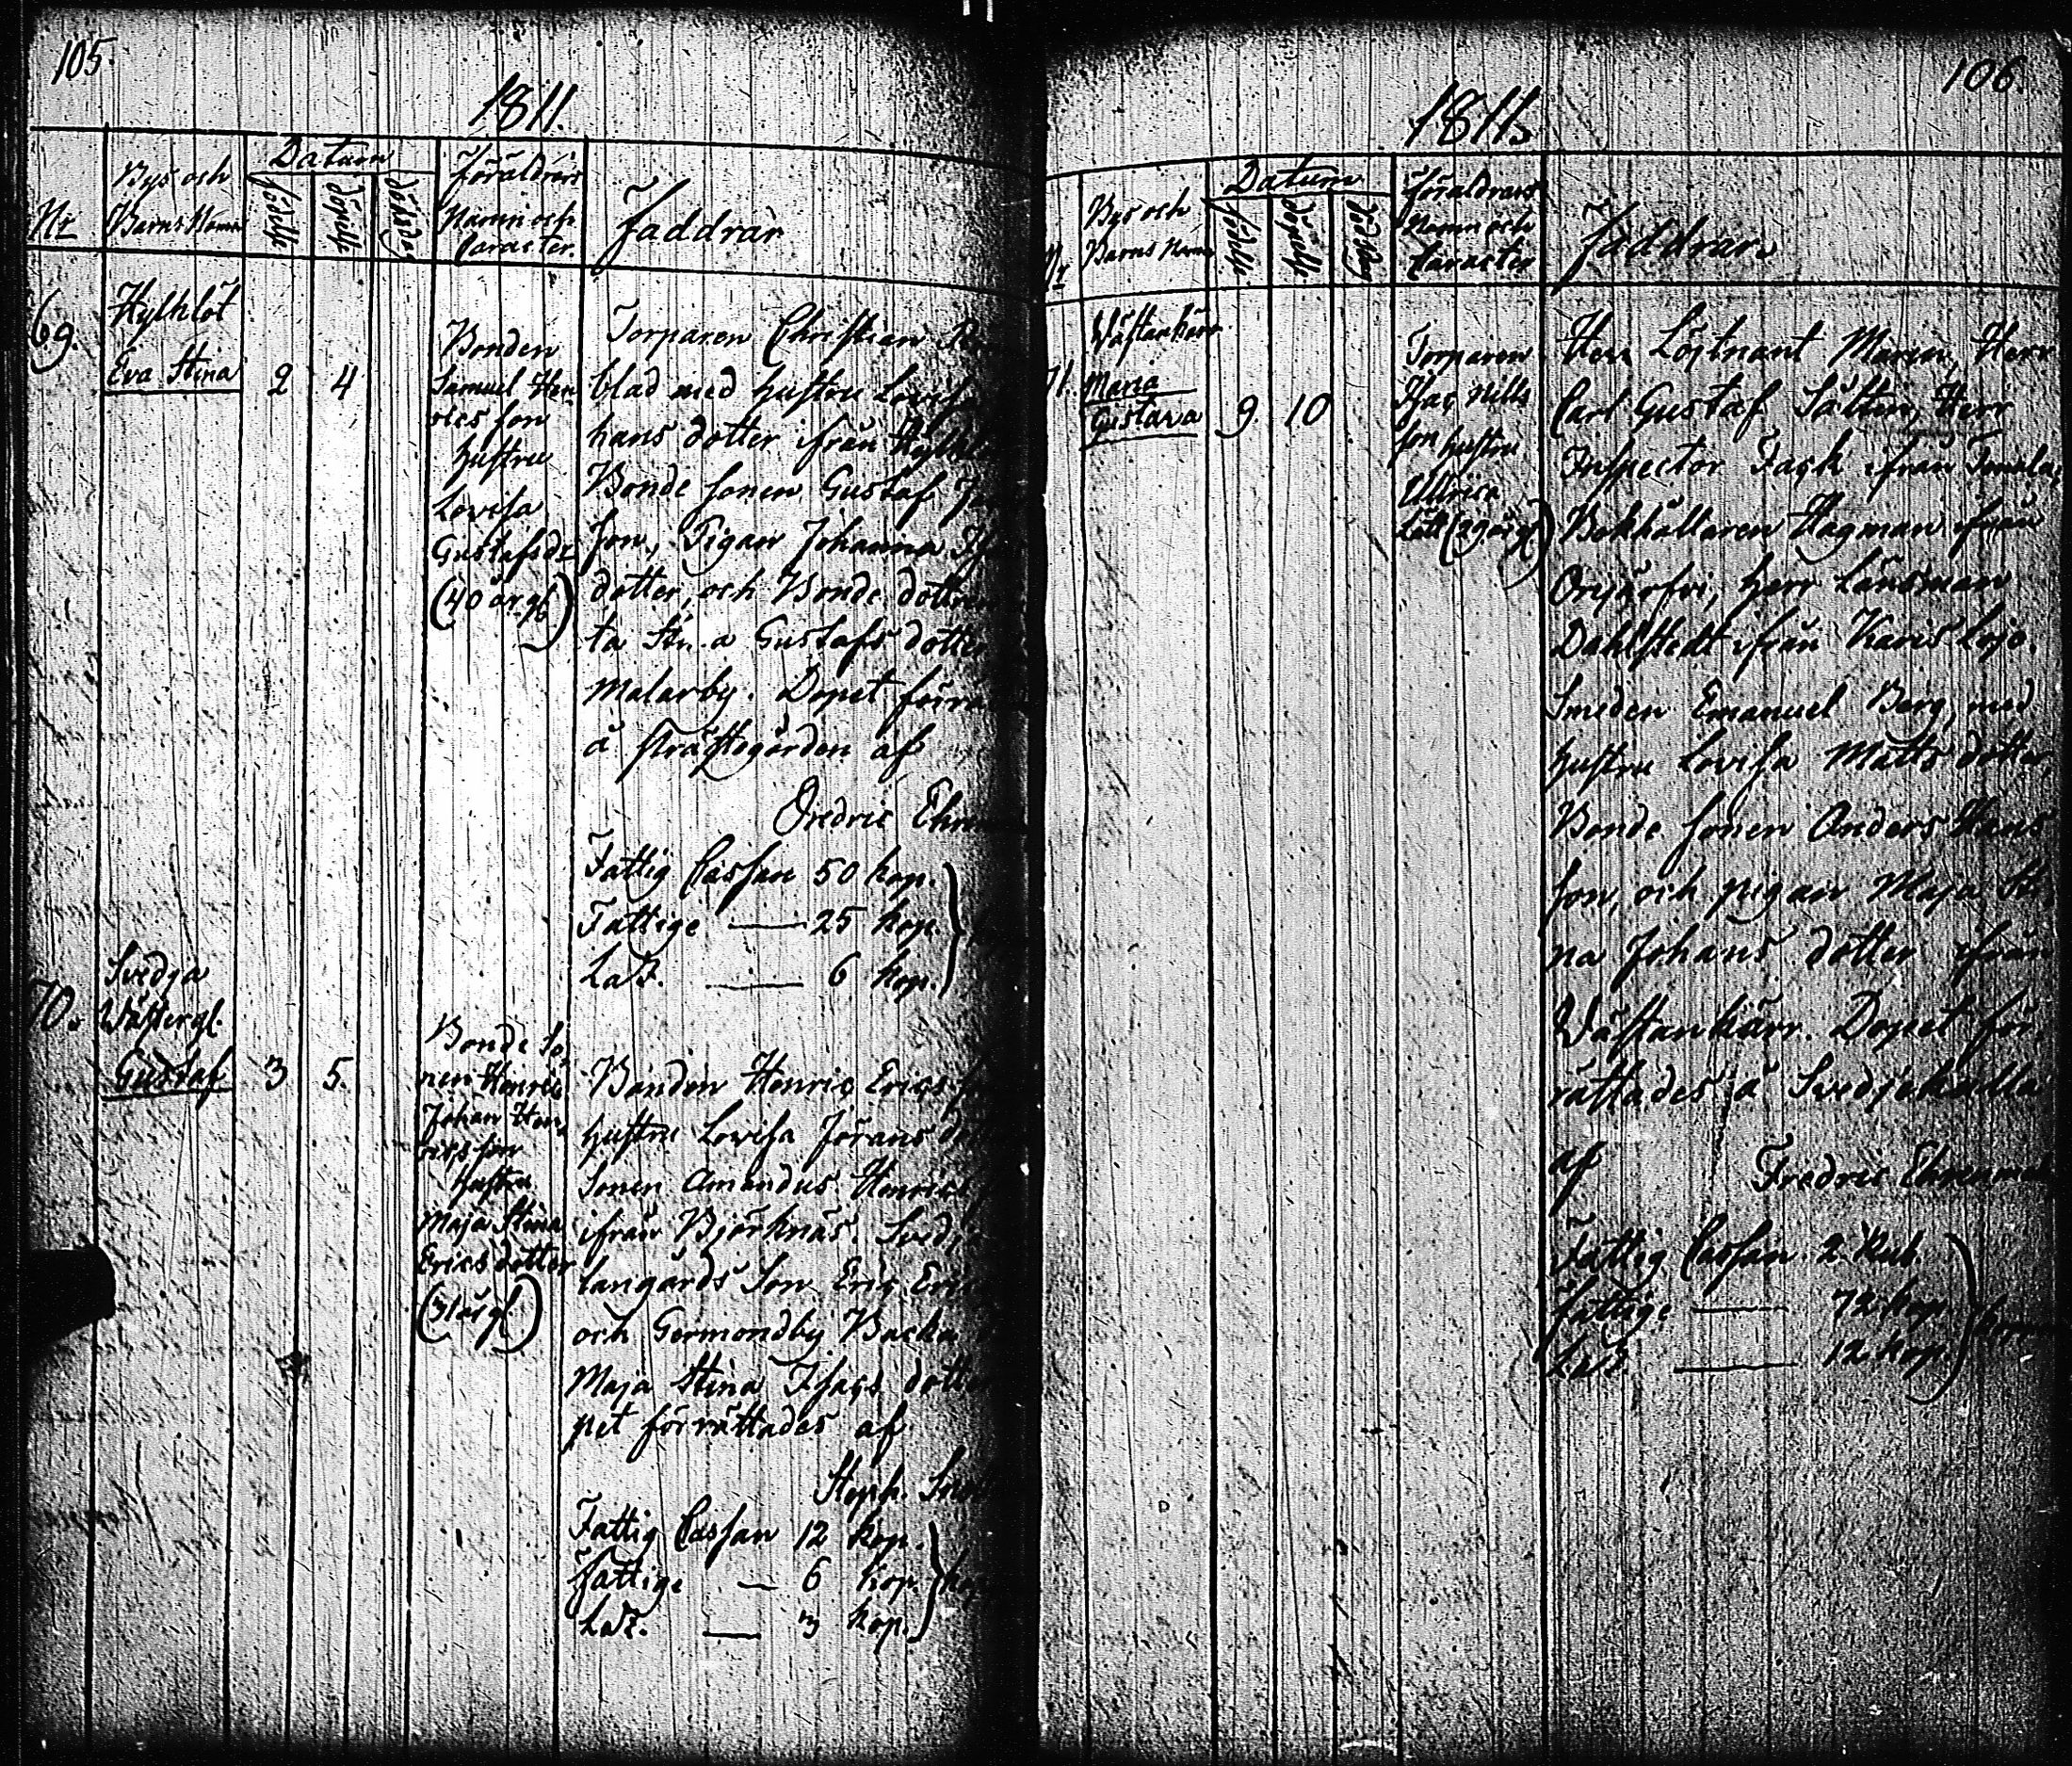 105.
1811.
Nr
Bys och
Barns Namn
Datum
födelse
döpelse
dödsdag
Föräldrars
Namn och
Caracter.
Faddrar
69.
Kylklöt
Eva Stina
2
4
Bonden
Samuel Hen
rics son
hustru
Lovisa
Gustafsdr
(40 år gl.)
Torparen Christian
blad med hustru Lovisa
hans dotter ifrån
Bonde sonen Gustaf
son, Pigan Johanna
dotter, och Bonde dottren
ta Stina Gustafs dotter
Malarby. Dopet förrä
å Prästegården af
Fredric Ehren
Fattig Cassan 50 kop.
Fattige — 25 kop.
Laz. — 6 kop.
70.
Svedja
Wästergl.
Gustaf
3
5.
Bonde So
nen Henric
Johan Hen
rics son
hustru
Maja Stina
Erics dotter
(31 år gl)
Bonden Henric Erics
hustru Lovisa Jörans
Sonen Amandus Henrics
ifrån Björknäs. Svedja
langårds Son Eric Eric
och Germondby Backa
Maja Stina Isacs dotter
pet förrättades af
Steph.
Fattig Cassan 12 kop.
Fattige — 6 kop.
Laz. — 3 kop.
106.
1811.
Nr
Bys och
Barns Namn
Datum
födelse
döpelse
dödsdag
Föräldrars
Namn och
Caracter
Faddrar.
71.
Wästankärr
Maria
Gustava
9.
10
Torparen
Isac Nills
son hustru
Ullrica
(29 år gl)
Herr Löjtnant Marin, Herr
Carl Gustaf Sältin, Herr
Inspector Fack ifrån
Bokhållaren Hagman ifrån
Orijärfvi, Herr Länsman
Dahlstedt ifrån Karis Lojo.
Smeden Emanuel Berg, med
hustru Lovisa Matts dotter,
Bonde sonen Anders Hans
son, och pigan Maja Sti
na Johans dotter ifrån
Västankärr. Dopet för
rättades å Svedjekulla
af Fredric Ehren
Fattig Cassan 2 Rub.
Fattige — 72 kop.
Laz. — 12 kop.